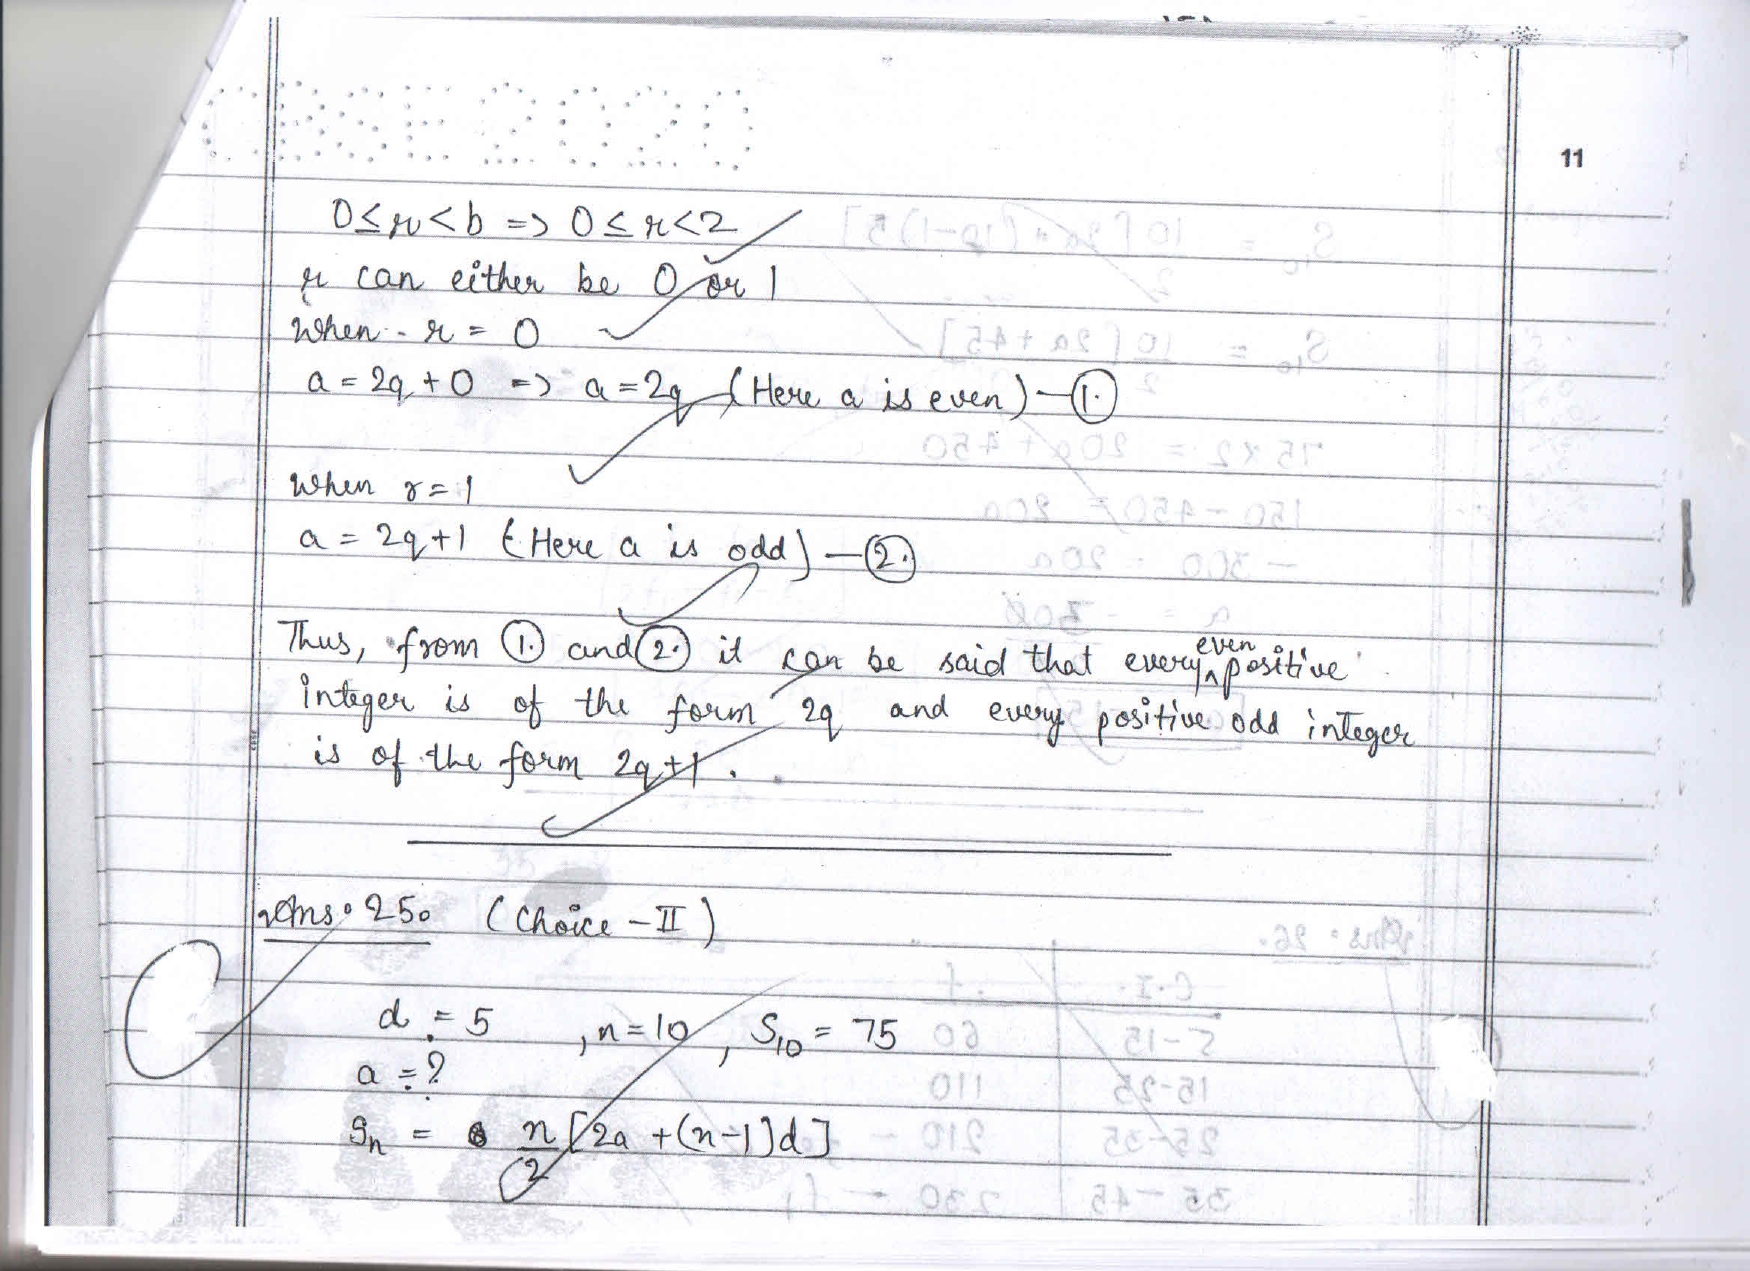 CBSE 2020
11
0≤r<b => 0≤r<2
r can either be 0 or 1
When r = 0
a = 2q + 0 => a = 2q (Here a is even) — ①.
When r = 1
a = 2q+1 (Here a is odd) — ②.
Thus, from ①. and ②. it can be said that every even positive
integer is of the form 2q and every positive odd integer
is of the form 2q+1.
Ans: 25. (Choice - II)
d = 5 , n = 10 , S10 = 75
a = ?
Sn = n/2 [2a + (n-1)d]